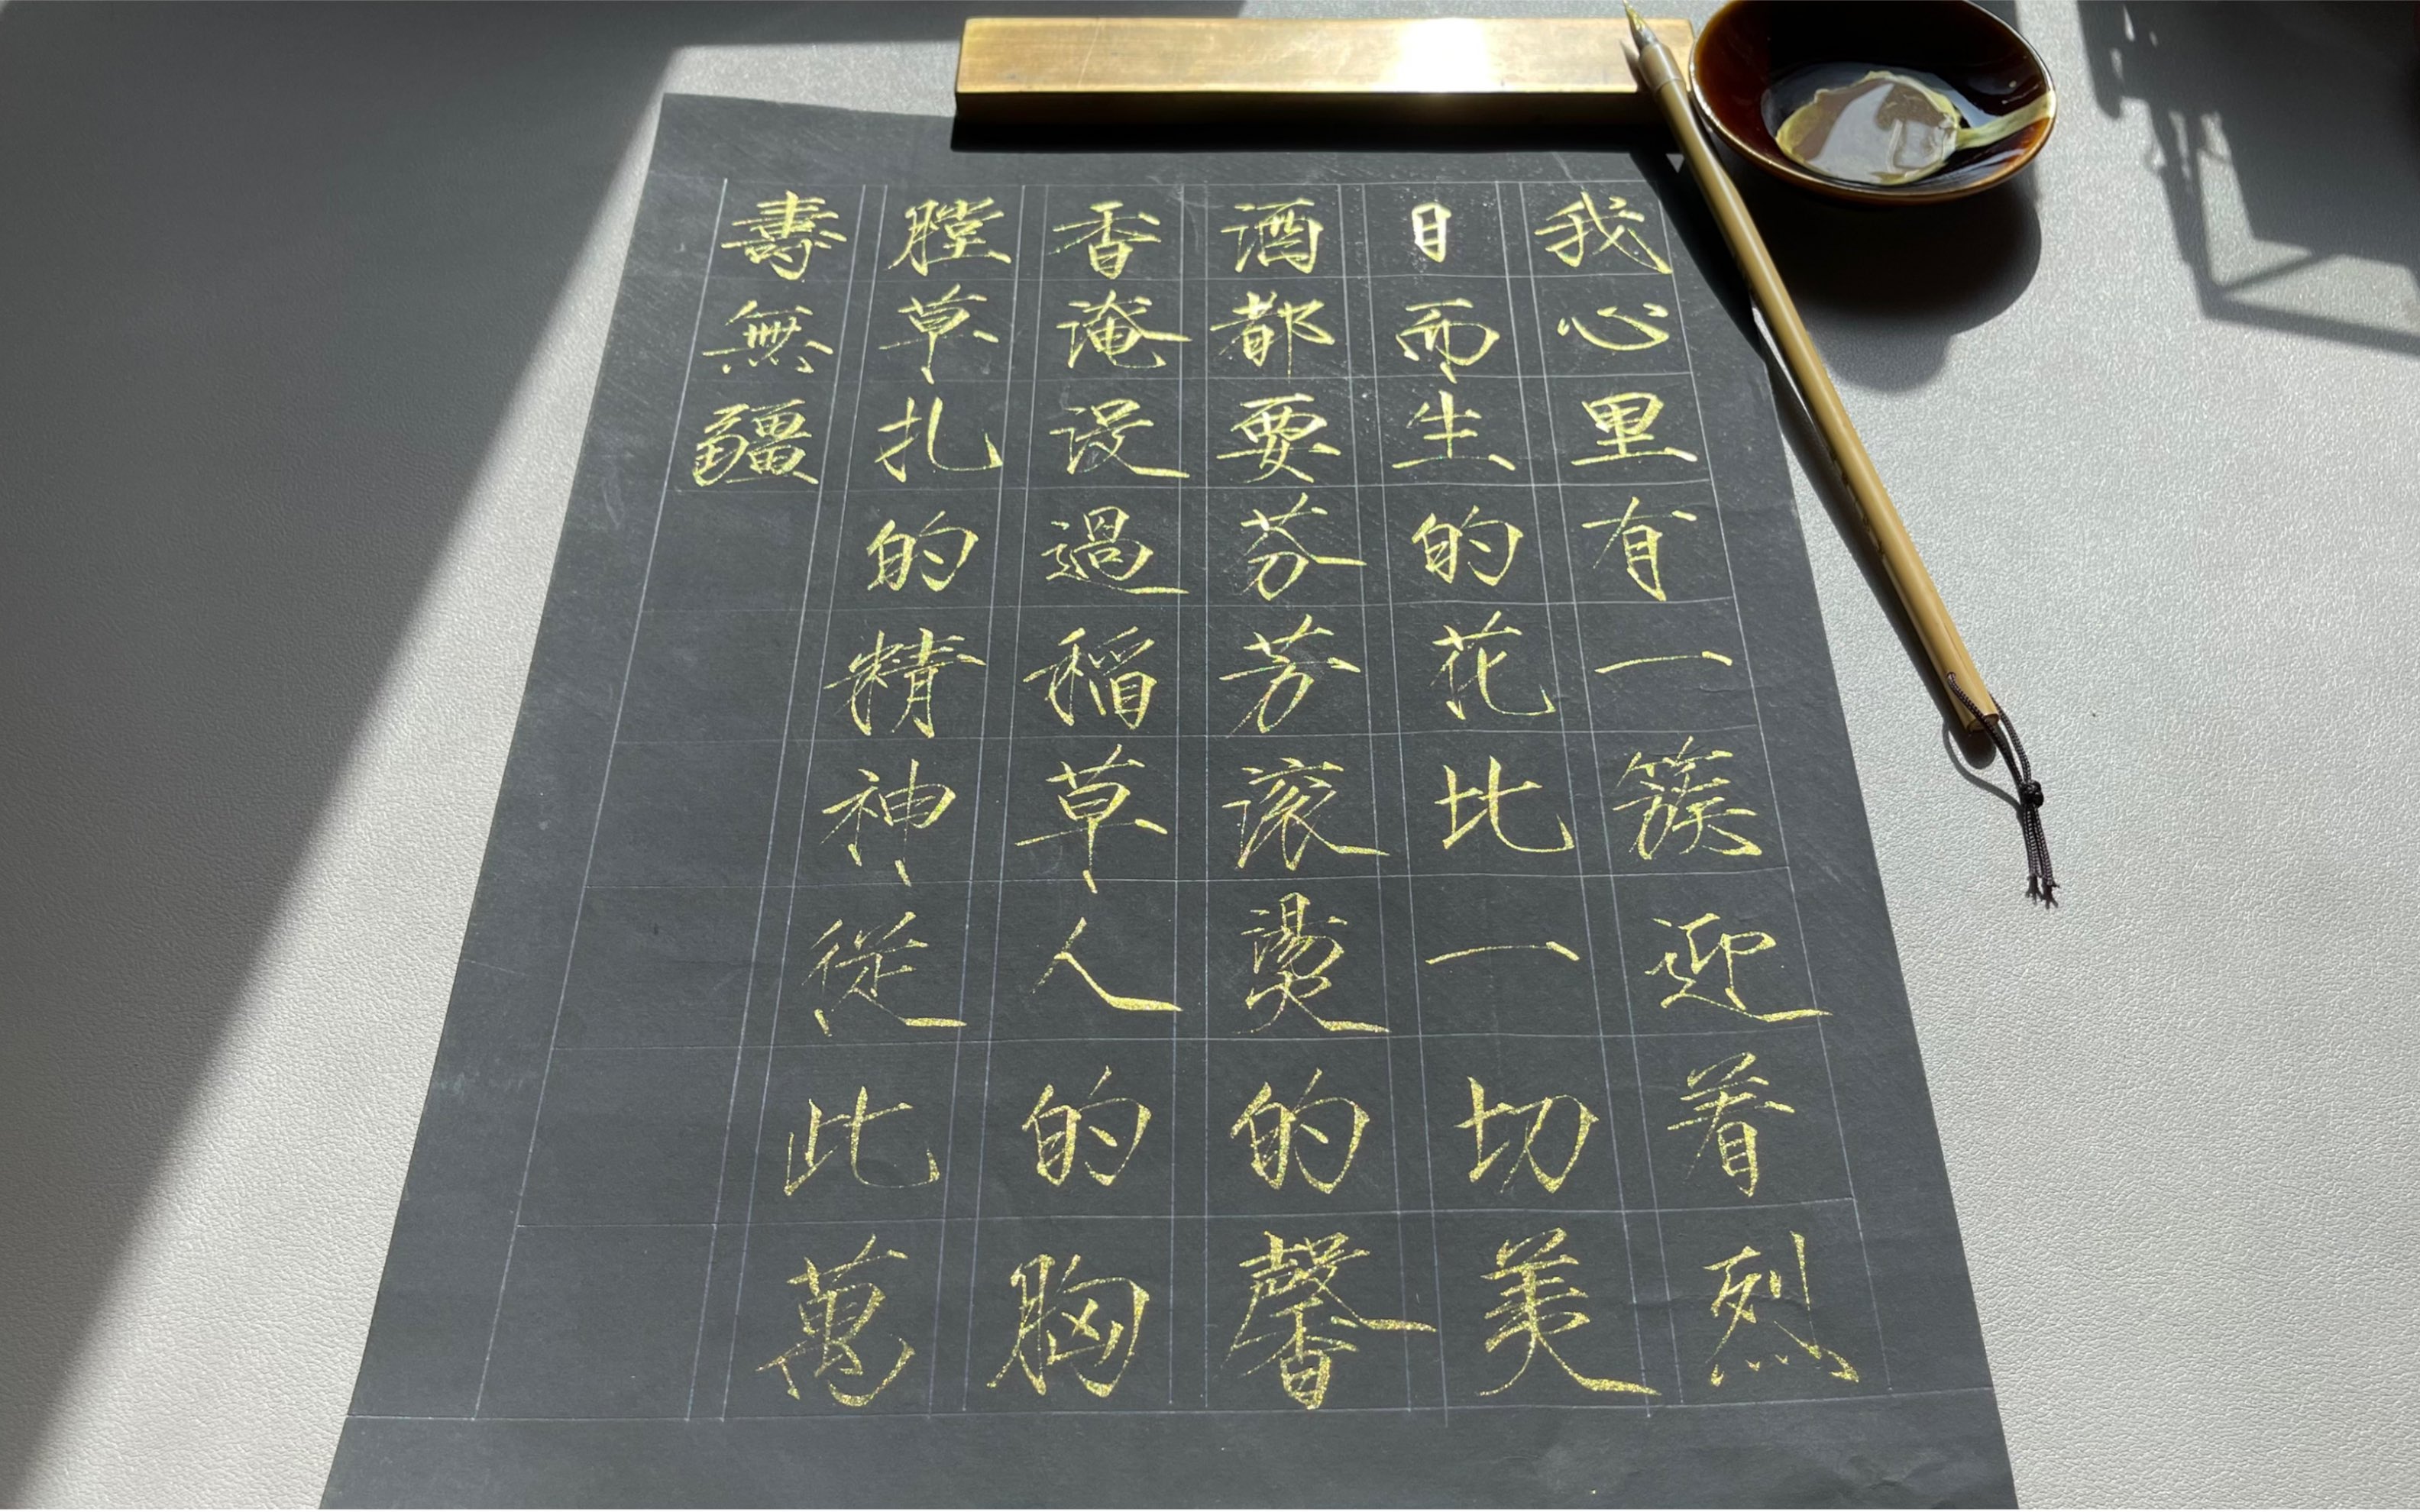 我心里有一簇迎着烈
日而生的花比一切美
酒都要芬芳滚燙的馨
香淹没過稻草人的胸
膛草扎的精神從此萬
壽無疆